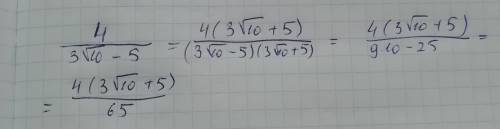 4/(3√10 − 5) = 4(3√10 + 5)/((3√10 − 5)(3√10 + 5)) = 4(3√10 + 5)/(9·10 − 25) =
= 4(3√10 + 5)/65